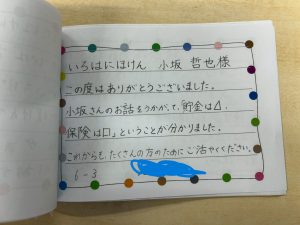 いろはにほけん 小坂 哲也様
この度はありがとうございました。
小坂さんのお話をうかがって、貯金は△、
保険は□」ということが分かりました。
これからも、たくさんの方のためにご活やくください。
6-3